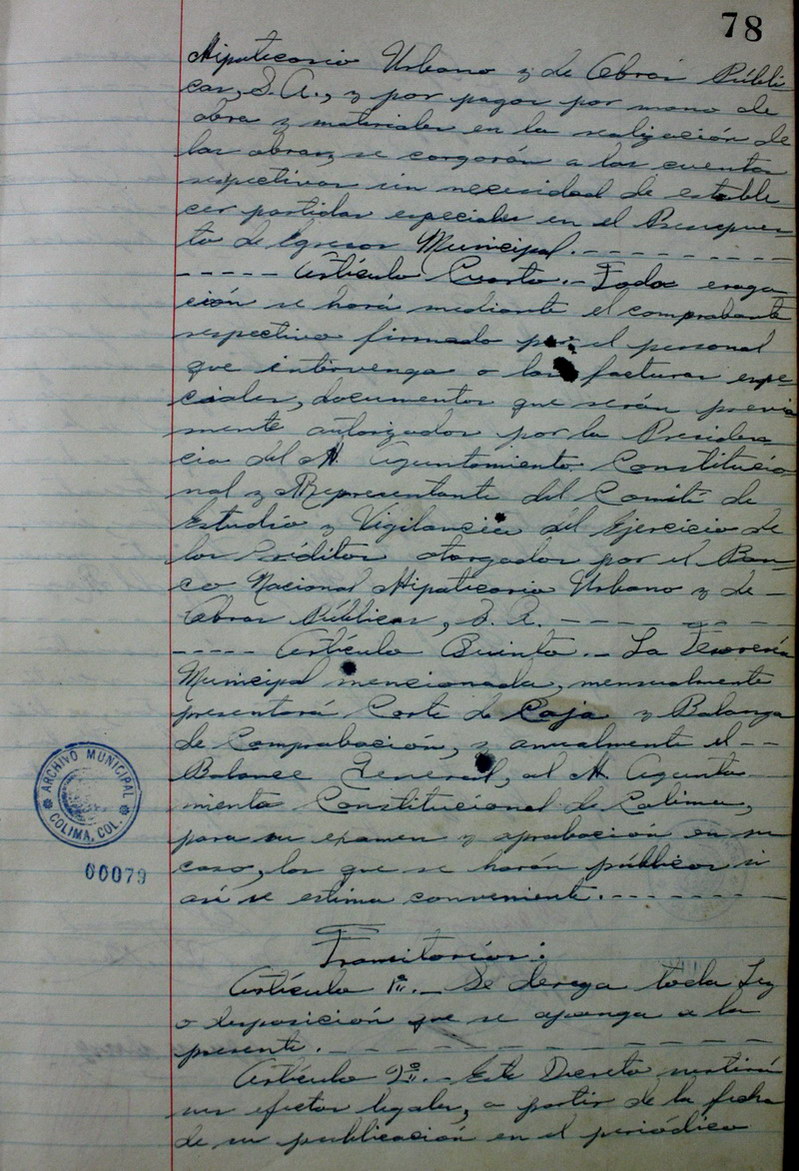 78
Hipotecario Urbano y de Obras Públi-
cas, S.A., y por pagos por mano de
obra y materiales en la realización de
las obras, se cargarán a las cuentas
respectivas sin necesidad de estable-
cer partidas especiales en el Presupues-
to de Egresos Municipal. - - - - - - - - -
- - - - - Artículo Cuarto. - Toda eroga-
ción se hará mediante el comprobante
respectivo firmado por el personal
que intervenga o las facturas espe-
ciales, documentos que serán previa
mente autorizados por la Presiden
cia del H. Ayuntamiento Constitucio-
nal y Representante del Comité de
Estudio y Vigilancia del Ejercicio de
los Créditos otorgados por el Ban-
co Nacional Hipotecario Urbano y de -
Obras Públicas, S. A. - - - - - - - -
- - - - - Artículo Quinto. - La Tesorería
Municipal mencionada, mensualmente
presentará Corte de Caja y Balanza
de Comprobación, y anualmente el - -
Balance General, al H. Ayunta
miento Constitucional de Colima,
para su examen y aprobación en su
caso, los que se harán públicos si
así se estima conveniente. - - - - - - - -
ARCHIVO MUNICIPAL
COLIMA, COL.
00079
Transitorios:
Artículo 1º. - Se deroga toda Ley
o disposición que se oponga a la
presente. - - - - - - - - - - -
Artículo 2º. - Este Decreto surtirá
sus efectos legales, a partir de la fecha
de su publicación en el periódico